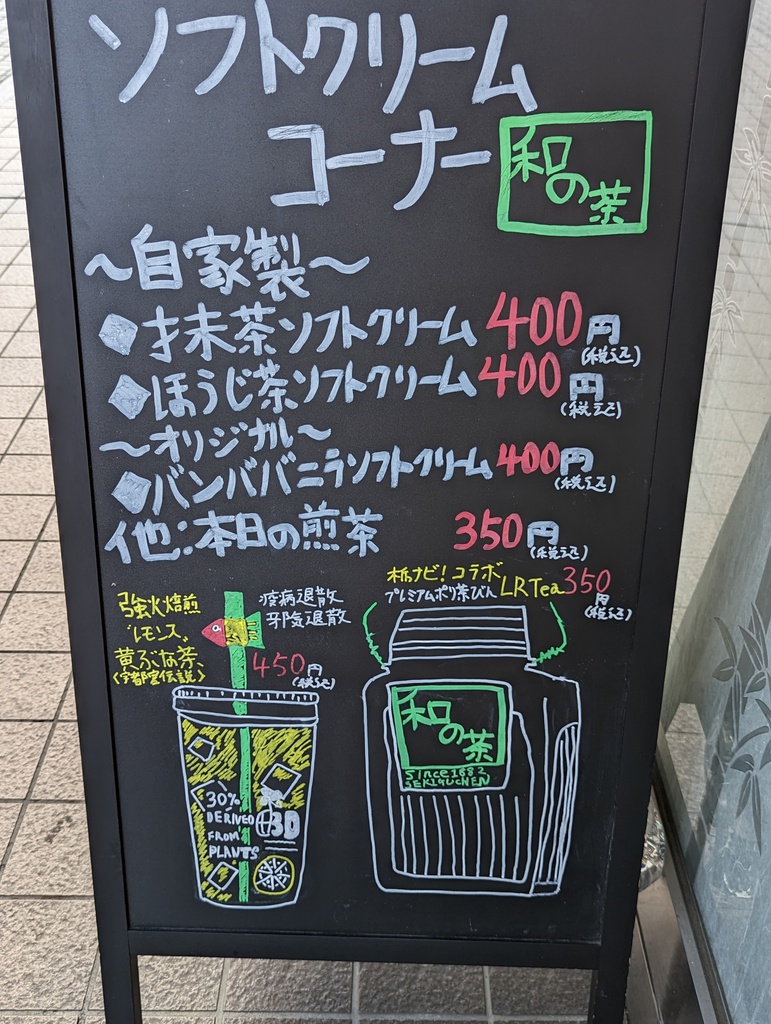 ソフトクリーム
コーナー
和の茶
～自家製～
◆抹茶ソフトクリーム400円
(税込)
◆ほうじ茶ソフトクリーム400円
(税込)
～オリジナル～
◆バンババニラソフトクリーム400円
(税込)
他:本日の煎茶 350円
(税込)
強火焙煎
"レモンス"
黄ぶな茶
〈宇都宮伝説〉
疫病退散
邪気退散
450円
(税込)
栃ナビ!コラボ
プレミアムポリ茶びん LRTea350
円
(税込)
30%
DERIVED
FROM
PLANTS
和の茶
Since1882
SEKIGUCHEN